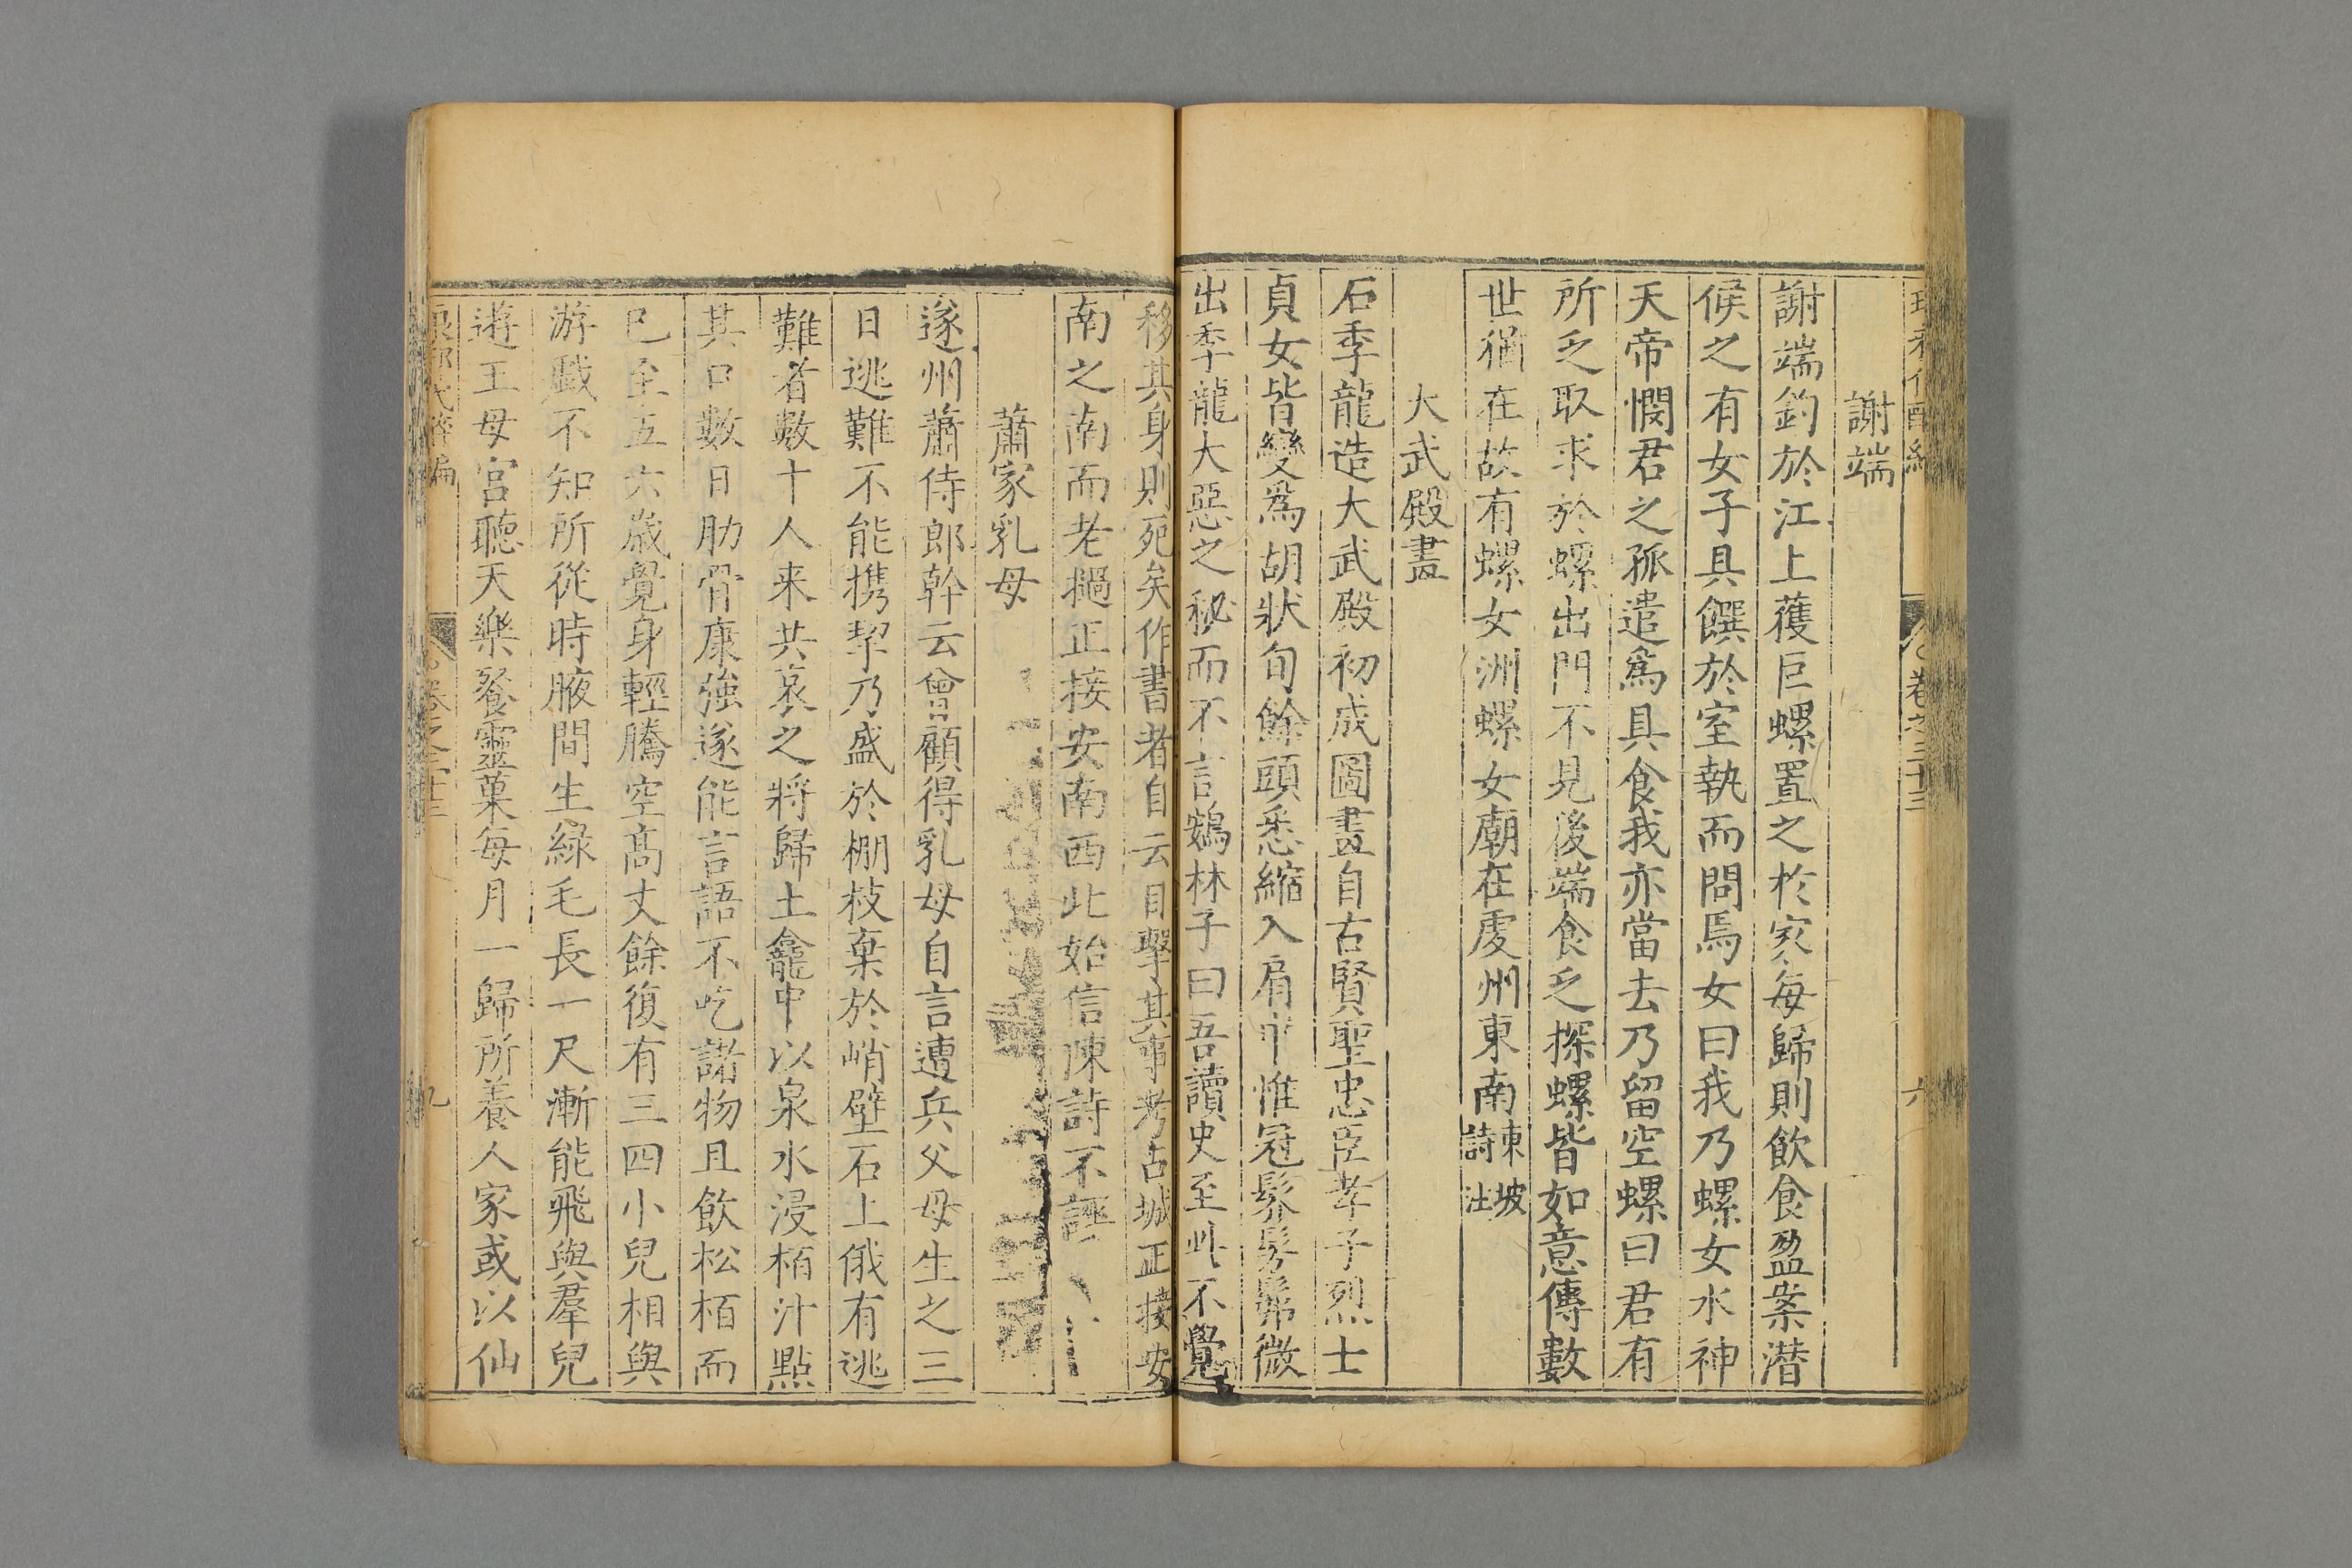 卷之三十三
六
謝端
謝端釣於江上獲巨螺置之於家每歸則飲食盈案潛
候之有女子具饌於室執而問焉女曰我乃螺女水神
天帝憫君之孤遣爲具食我亦當去乃留空螺曰君有
所乏取求於螺出門不見後端食乏探螺皆如意傳數
世猶在故有螺女洲螺女廟在虔州東南東坡詩注
大武殿畫
石季龍造大武殿初成圖畫自古賢聖忠臣孝子烈士
貞女皆變爲胡狀旬餘頭悉縮入肩中惟冠髹髣髴微
出季龍大惡之秘而不言鶏林子曰吾讀史至此不覺
移其身則死矣作書者自云目擊其事考古城正接安
南之南而老撾正接安南西北始信陳詩不誣
蕭家乳母
遂州蕭侍郎幹云曾顧得乳母自言遭兵父母生之三
日逃難不能携挈乃盛於棚枝棄於峭壁石上俄有逃
難者數十人来共哀之將歸土龕中以泉水浸栢汁點
其口數日肋骨康強遂能言語不吃諸物且飲松栢而
已至五六歲覺身輕騰空高丈餘復有三四小兒相與
游戲不知所從時腋間生綠毛長一尺漸能飛與羣兒
遊王母宮聽天樂餐靈菓每月一歸所養人家或以仙
琅邪代醉編
卷之三十三
九